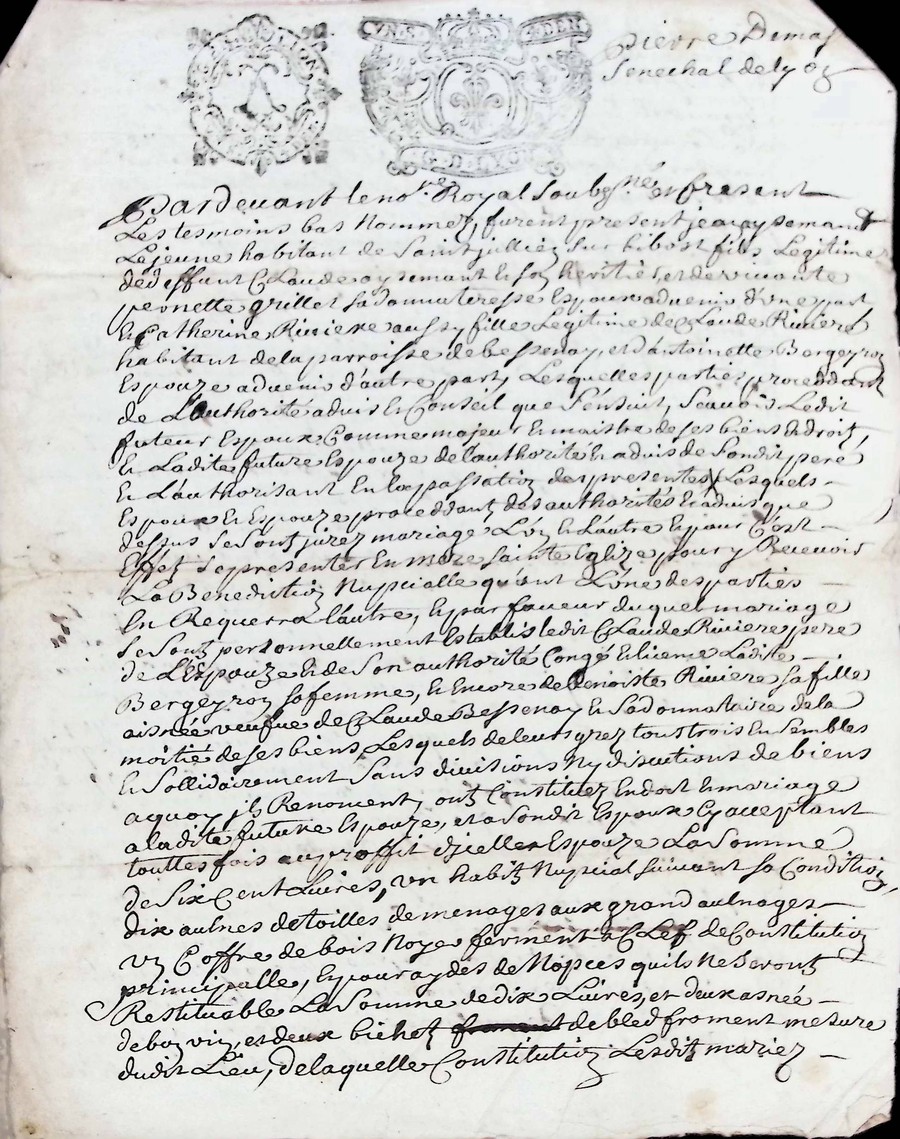 VN·S· 8 DEN
G·D·LYON
Pierre Dumas
Senechal de Lyon
Pardevant le no.re Royal Soubsne. et present
Les tesmoins bas Nommez, furent present jean aysemant
Lejeune habitant de Saint jullien Sur bibost fils Legitime
de deffunt Claude aysemant Et Son heritier, et de vivante
pernette grillet Sa donnateresse Espoux advenir d'vne part
Et Catherine Riviere aussy fille Legitime de Claude Riviere
habitant de la parroisse de bessenay, et d'antoinette Bergeyron
Espouze advenir d'autre part, Lesquelles parties proceddant
de L'authorité advis Et Conseil que S'ensuit, Scavoir Ledit
futeur Espoux Comme majeur Et maistre de ses biens Et droitz
Et Ladite future Espouze de l'authorité Et advis de Sondit pere
Et L'authorisant En la passation des presentes, Lesquels
Espoux Et Espouze proceddant des authorités Et advis que
dessus se Sont jurez mariage L'vn Et L'autre Et pour C'est
Effet Se presenter En mere Sainte Eglize pour y Recevoir
La Benediction Nupcialle quant L'vne des parties
En Requerra L'autre, Et par faveur duquel mariage
se Sont personnellement Establis ledit Claude Riviere pere
de L'Espouze Et de Son authorité Congé Et licence Ladite
Bergeyron Sa femme, Et Encore de benoiste Riviere Sa fille
aisnée veufve de Claude Bessenay Et Sa donnataire de la
moitié de ses biens, Lesquels de leurs grez tous trois Ensembles
Et Sollidairement Sans divisions Ny discutions de biens
a quoy jls Renoncent, ont Constituez En dot Et mariage
a ladite future Espouze, et a Sondit Espoux Cy acceptant
touttes fois au proffit d'jcelle Espouze La Somme
de Six Cent Livres, vn habitz Nupcial suivant sa Condition,
dix aulnes de toilles de menages aux grand aulnages
vn Coffre de bois Noyer ferment a Clef de Constitution
principalle, Et pour aydes de Nopces quils Ne Seront
Restituable La Somme de dix Livres, et deux asnée
de bon vin, et deux bichetz de bled froment mesure
dudit Lieu, de laquelle Constitution Lesditz mariez